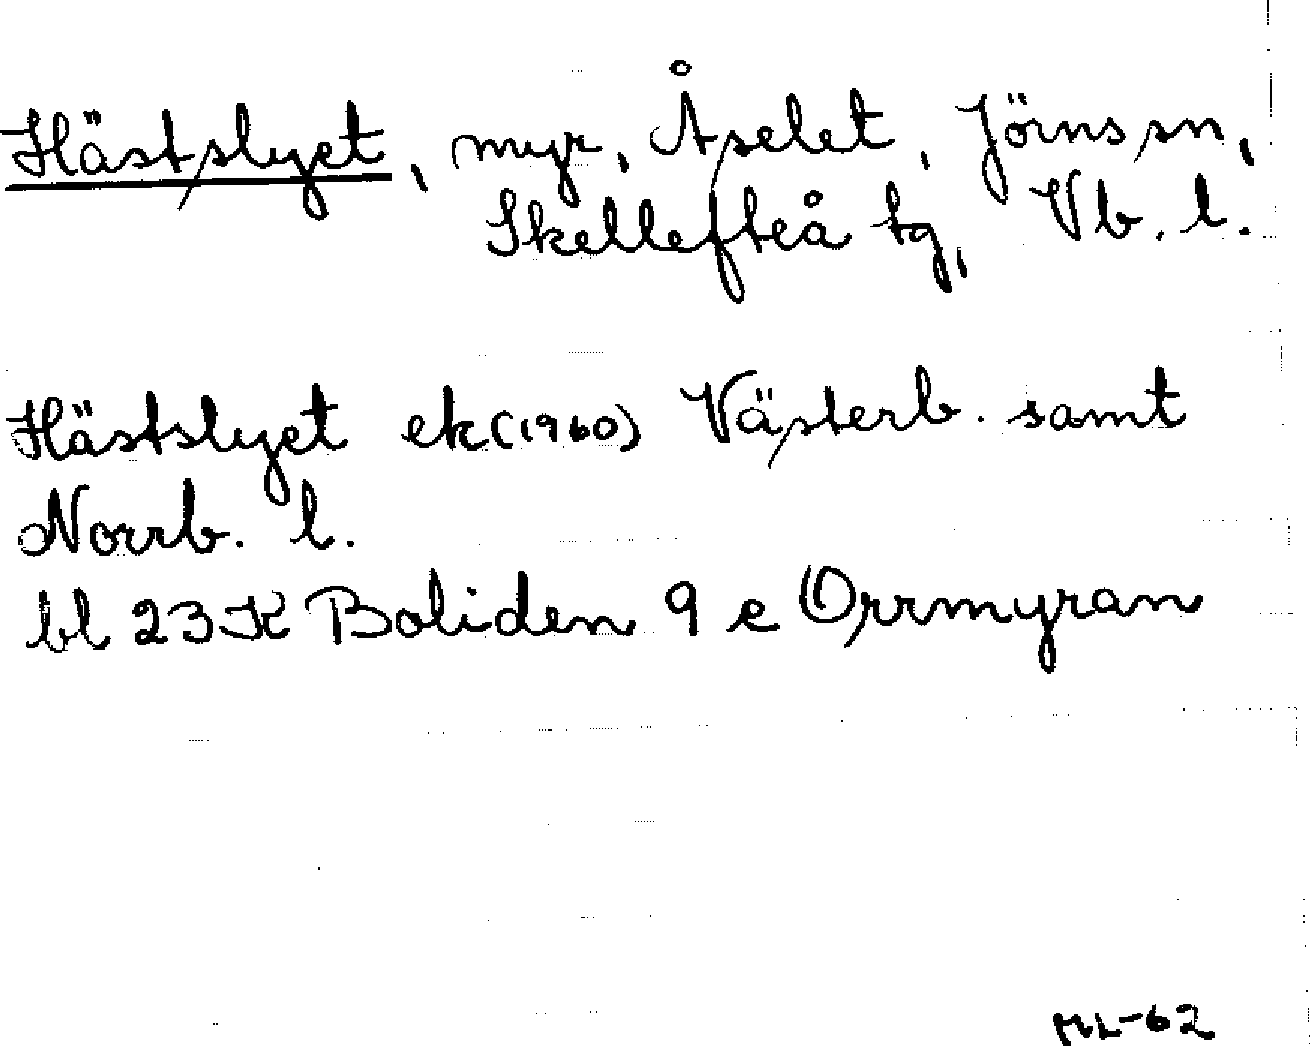 Hästslyet, myr, Åselet, Jörns sn,
Skellefteå tg, Vb. l.
Hästslyet ek (1960) Västerb. samt
Norrb. l.
bl 23K Boliden 9 e Orrmyran
ML-62